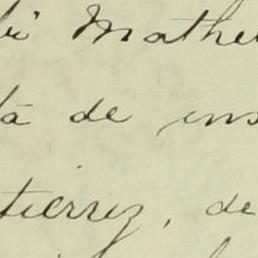 Mathe
de ins
tierrez, de